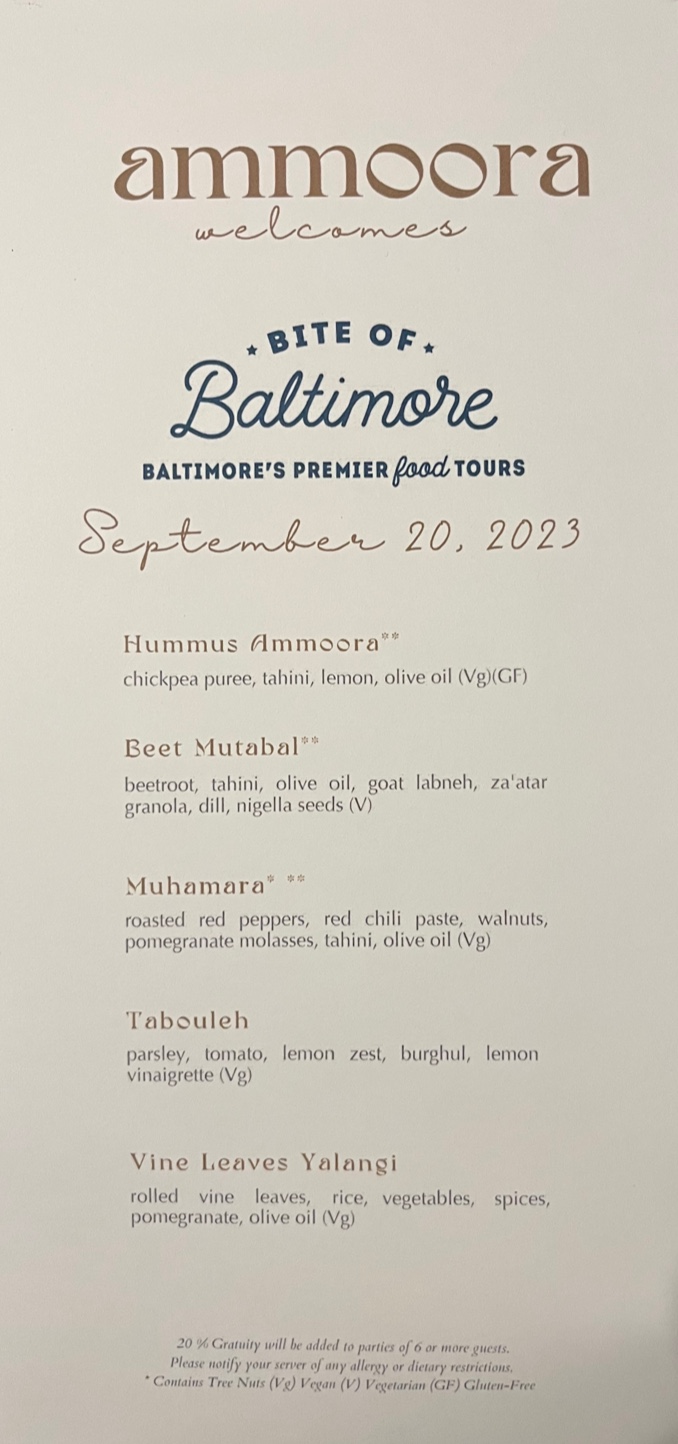 ammoora
welcomes
BITE OF
Baltimore
BALTIMORE'S PREMIER food TOURS
September 20, 2023
Hummus Ammoora**
chickpea puree, tahini, lemon, olive oil (Vg)(GF)
Beet Mutabal**
beetroot, tahini, olive oil, goat labneh, za'atar
granola, dill, nigella seeds (V)
Muhamara* **
roasted red peppers, red chili paste, walnuts,
pomegranate molasses, tahini, olive oil (Vg)
Tabouleh
parsley, tomato, lemon zest, burghul, lemon
vinaigrette (Vg)
Vine Leaves Yalangi
rolled vine leaves, rice, vegetables, spices,
pomegranate, olive oil (Vg)
20 % Gratuity will be added to parties of 6 or more guests.
Please notify your server of any allergy or dietary restrictions.
* Contains Tree Nuts (Vg) Vegan (V) Vegetarian (GF) Gluten-Free